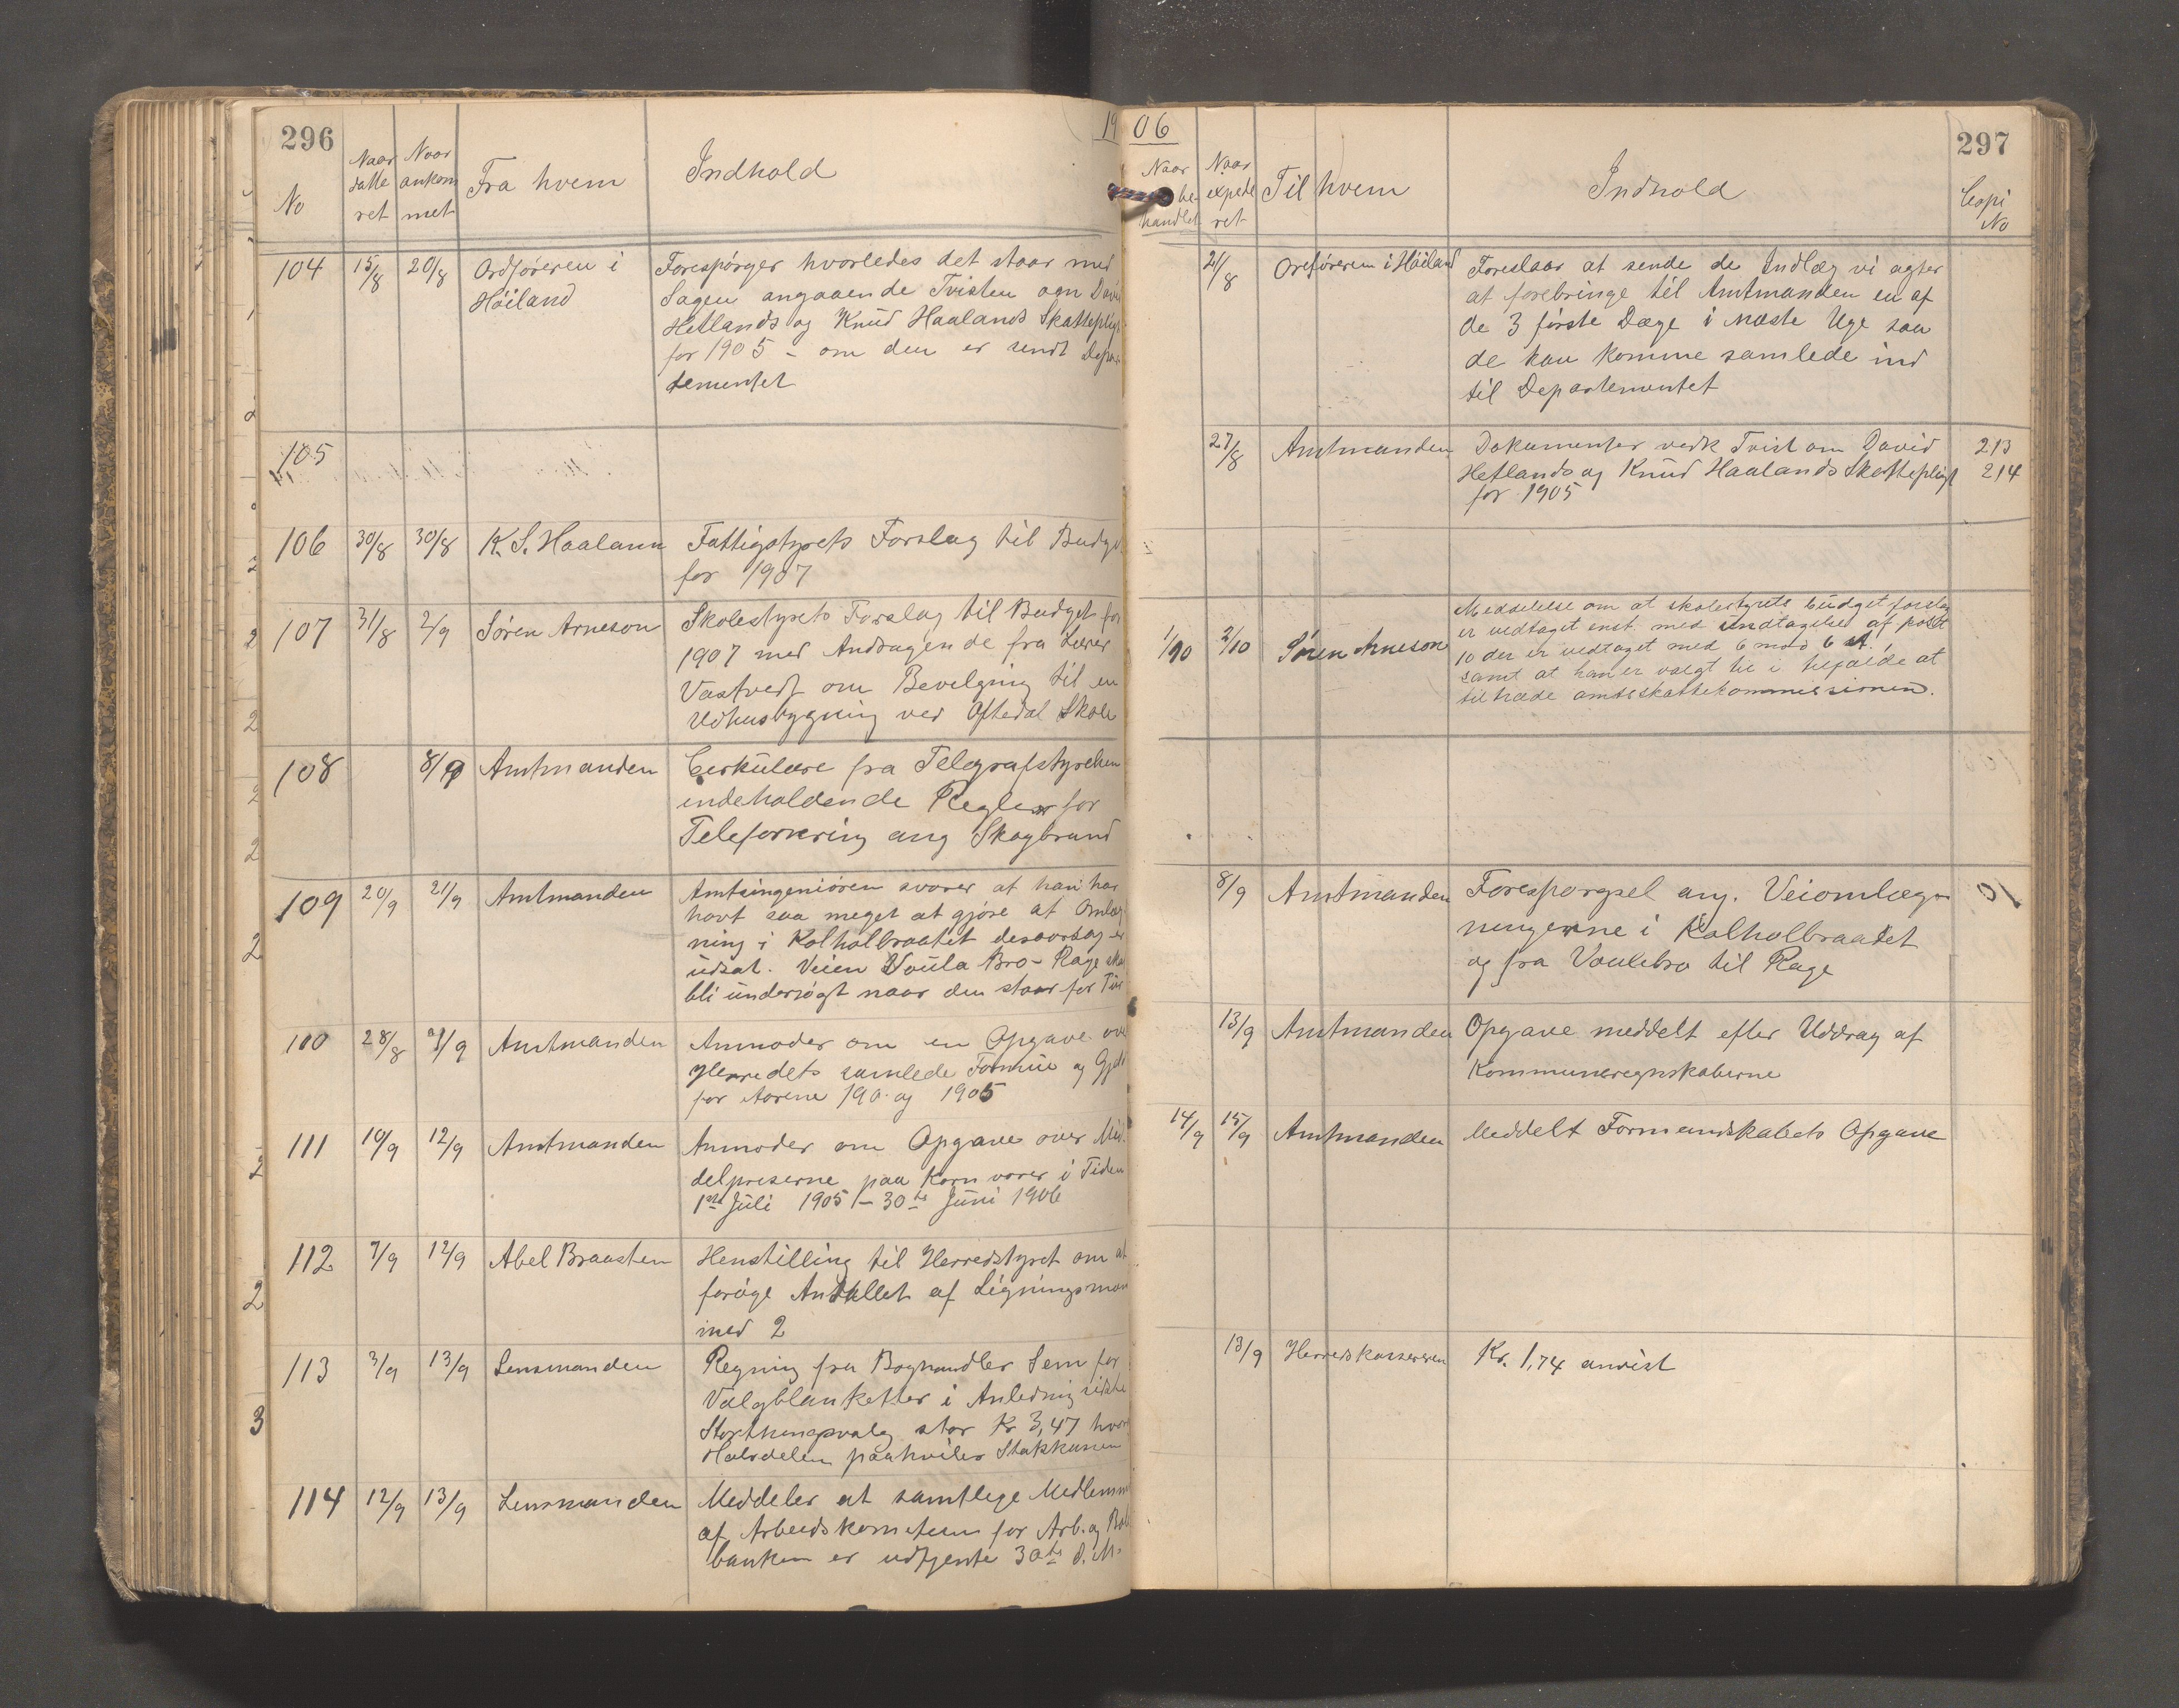 296
1906
297
No
Naar datte ret
Naar ankom met
Fra hvem
Indhold
Naar be- handlet
Naar expede ret
Til hvem
Indhold
Copi No
104 15/8 20/8 Ordføreren i
Høiland
Forespørger hvorledes det staar med
Sagen angaaende Tvisten om David
Hetlands og Knud Haalands Skattepligt
for 1905 - om den er sendt Depar
tementet
21/8 Ordføreren i Høiland
Foreslaar at sende de Indlæg vi agter
at forebringe til Amtmanden en af
de 3 første Dage i næste Uge saa
de kan komme samlede ind
til Departementet
105
27/8 Amtmanden
Dokumenter vedk Tvist om David 213
Hetlands og Knud Haalands Skattepligt 214
for 1905
106 30/8 30/8 K. S. Haaland
Fattigstyrets Forslag til Budget
for 1907
107 31/8 2/9 Søren Arneson
Skolestyrets Forslag til Budget for
1907 med Andragende fra Lærer
om Bevilgning til en
Udhusbygning ved Oftedal Skole
1/10 2/10 Søren Arneson
Meddelelse om at skolestyrets budgetforslag
er vedtaget enst. med undtagelse af post
10 der er vedtaget med 6 mod 6 st.,
samt at han er valgt til i tilfælde at
tiltræde amtsskattekommissionen.
108 8/9 Amtmanden
Cirkulære fra Telegrafstyrelsen
indeholdende Regler for
Telefonering ang Skogbrand
109 20/9 21/9 Amtmanden
Amtsingeniøren svarer at han har
havt saa meget at gjøre at Omlæg
ning i Kolholbraatet desaarsag er
udsat. Veien Voula Bro - Rage skal
bli undersøgt naar den staar for Tur
8/9 Amtmanden
Forespørgsel ang. Veiomlæg-
ningerne i Kalholbraatet
og fra Voulebro til Rage
110 28/8 9/9 Amtmanden
Anmoder om en Opgave over
Herredets samlede Formue og Gjeld
for Aarene 190 og 1905
13/9 Amtmanden
Opgave meddelt efter Uddrag af
Kommuneregnskaberne
111 10/9 12/9 Amtmanden
Anmoder om Opgave over Mid
delpriserne paa Kornvarer i Tiden
1ste Juli 1905 - 30te Juni 1906
14/9 15/9 Amtmanden
Meddelt Formandskabets Opgave
112 7/9 12/9 Abel Braasten
Henstilling til Herredstyret om at
forøge Antallet af Ligningsmæn
med 2
113 3/9 13/9 Lensmanden
Regning fra Boghandler Sem for
Valgblanketter i Anledning sidste
Storthingsvalg stor Kr 3,47 hvoraf
Halvdelen paahviler
13/9 Herredskassereren
Kr. 1,74 anvist
114 12/9 13/9 Lensmanden
Meddeler at samtlige Medlemmer
af Arbeidskomiteen for Arb. og Bol
banken er udtjente 30te d. M.